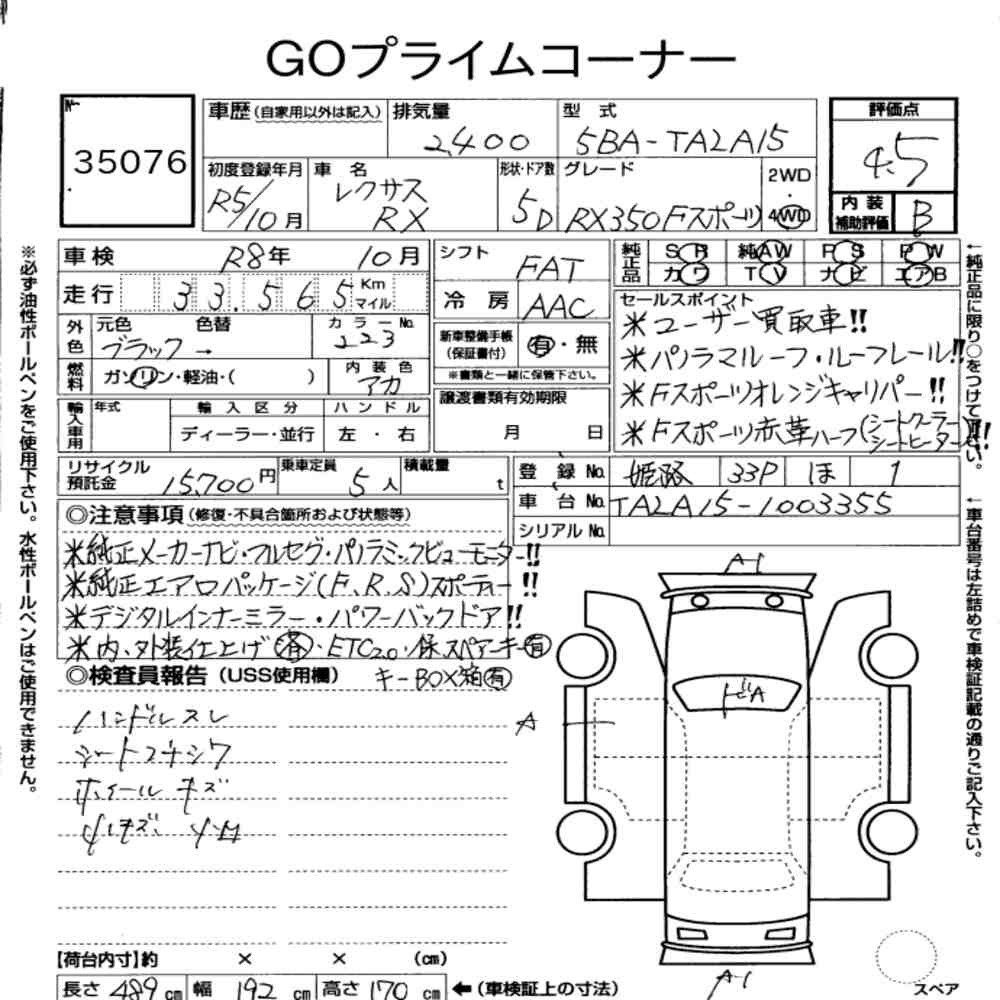 GOプライムコーナー
35076
車歴 (自家用以外は記入) 排気量 2,400 型式 5BA-TA2A15
初度登録年月 R5/10月 車名 レクサス RX 形状・ドア数 5D グレード RX350Fスポーツ 2WD 4WD
評価点 4.5
内装補助評価 B
車検 R8年 10月
走行 33,565 Km マイル
外色 元色 ブラック 色替 → カラーNo. 223
燃料 ガソリン・軽油・( ) 内装色 アカ
輸入車用 年式 輸入区分 ディーラー・並行 ハンドル 左・右
シフト FAT
冷房 AAC
新車整備手帳 (保証書付) 有・無
※書類と一緒に保管下さい。
譲渡書類有効期限 月 日
純正品 SR 純AW PS PW
カワ TV ナビ エアB
セールスポイント
※ユーザー買取車!!
※パノラマルーフ・ルーフレール!!
※Fスポーツオレンジキャリパー!!
※Fスポーツ赤革ハーフ(シートクーラー シートヒーター)!!
リサイクル預託金 15,700円 乗車定員 5人 積載量 t
登録No. 姫路 33P ほ 1
車台No. TA2A15-1003355
シリアルNo.
◎注意事項 (修復・不具合箇所および状態等)
※純正メーカーナビ・フルセグ・パノラミックビューモニター!!
※純正エアロパッケージ(F、R、S)スポーティー!!
※デジタルインナーミラー・パワーバックドア!!
※内、外装仕上げ済・ETC2.0・保 スペアーキー有
◎検査員報告 (USS使用欄) キーBOX箱有
ハンドルスレ
シートコナシワ
ホイールキズ
A-1
A
トビA
A-1
スペア
【荷台内寸】約 × × (cm)
長さ 489cm 幅 192cm 高さ 170cm ←(車検証上の寸法)
※必ず油性ボールペンをご使用下さい。水性ボールペンはご使用できません。
←純正品に限り○をつけて下さい。
←車台番号は左詰めで車検証記載の通りご記入下さい。